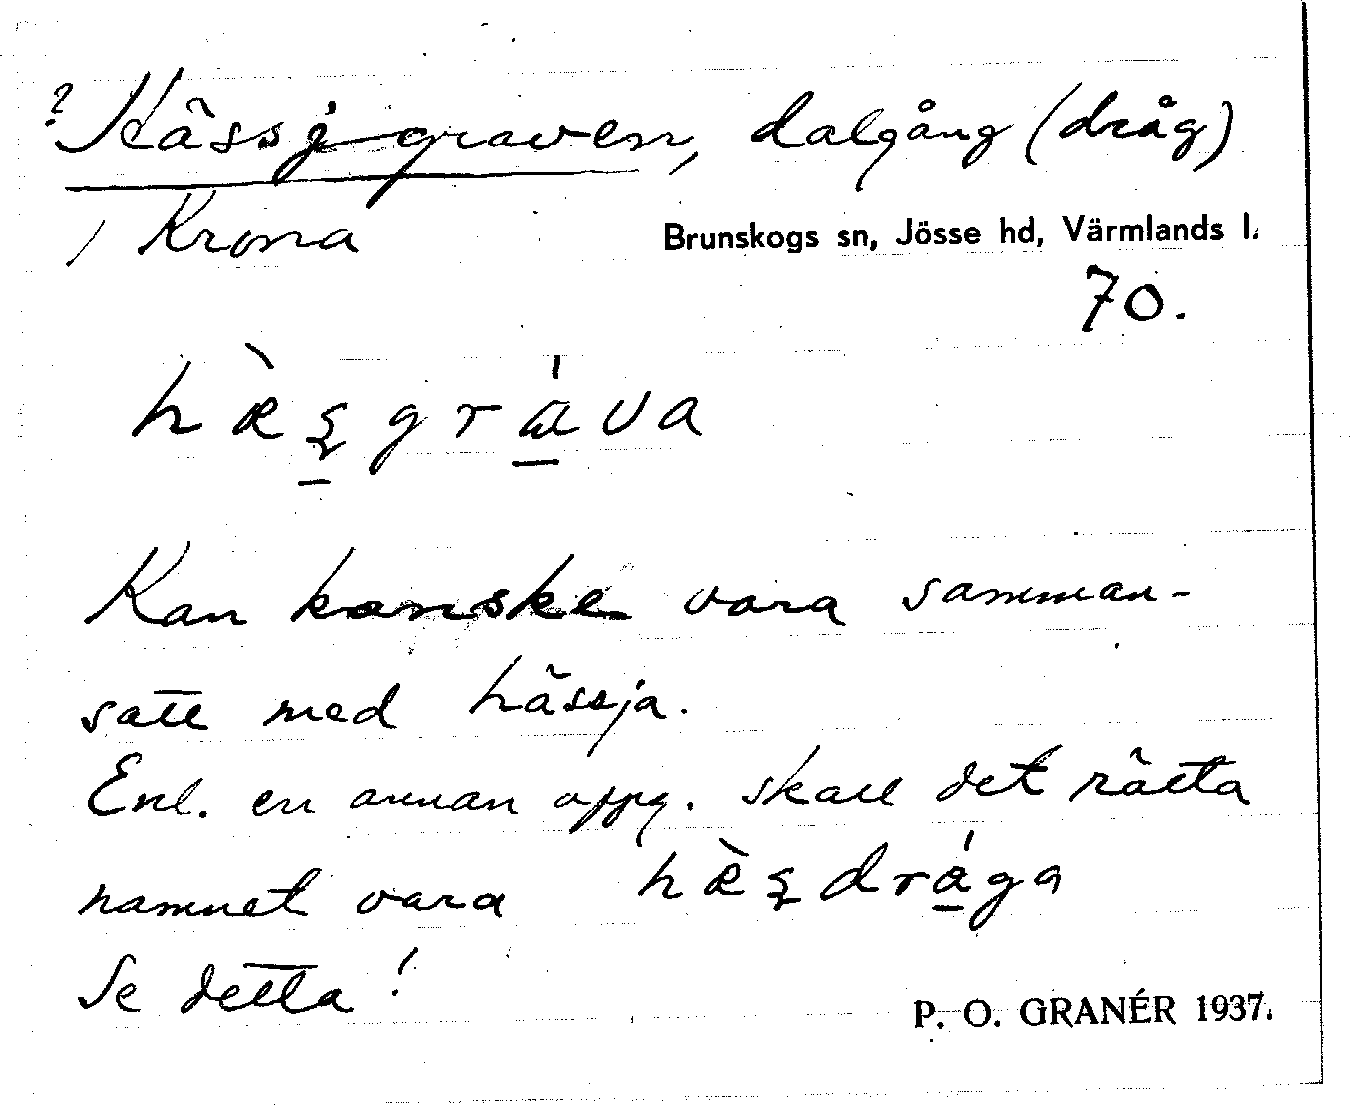 ? Hässjgraven, dalgång (dråg)
/ Krona
Brunskogs sn, Jösse hd, Värmlands l.
70.
hæ̀s̠gra̠̍va
Kan kanske vara samman-
satt med hässja.
Enl. en annan uppg. skall det rätta
namnet vara hæ̀sdra̠̍ga
Se detta!
P. O. GRANÉR 1937.